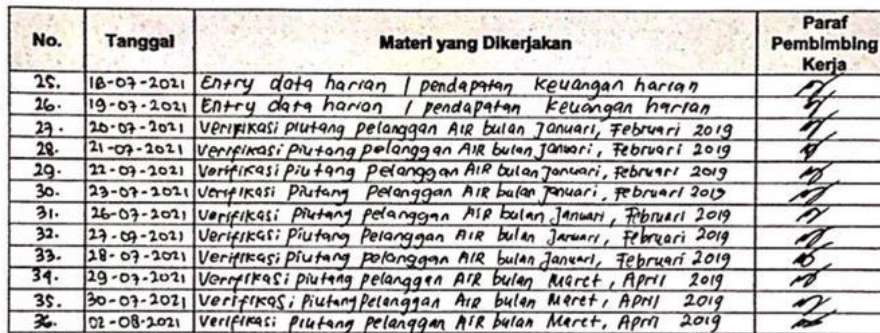 No. Tanggal Materi yang Dikerjakan Paraf Pembimbing Kerja
25. 18-07-2021 Entry data harian / pendapatan keuangan harian
26. 19-07-2021 Entry data harian / pendapatan keuangan harian
27. 20-07-2021 Verifikasi piutang pelanggan AIR bulan Januari, Februari 2019
28. 21-07-2021 Verifikasi piutang pelanggan AIR bulan Januari, Februari 2019
29. 22-07-2021 Verifikasi piutang pelanggan AIR bulan Januari, Februari 2019
30. 23-07-2021 Verifikasi Piutang Pelanggan AIR bulan Januari, Februari 2019
31. 26-07-2021 Verifikasi Piutang pelanggan AIR bulan Januari, Februari 2019
32. 27-07-2021 Verifikasi Piutang Pelanggan AIR bulan Januari, Februari 2019
33. 28-07-2021 Verifikasi Piutang pelanggan AIR bulan Januari, Februari 2019
34. 29-07-2021 Verifikasi piutang pelanggan AIR bulan Maret, April 2019
35. 30-07-2021 Verifikasi Piutang Pelanggan AIR bulan Maret, April 2019
36. 02-08-2021 Verifikasi Piutang pelanggan AIR bulan Maret, April 2019